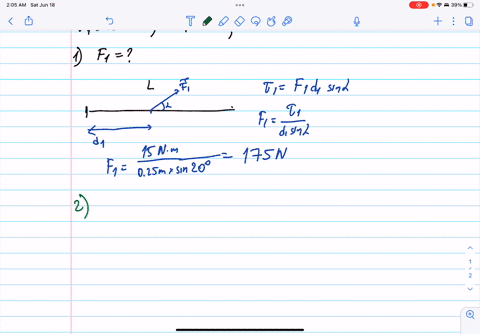 2:05 AM Sat Jun 18
1) F1 = ?
L
F1
α
τ1 = F1 d1 sin α
F1 = τ1 / d1 sin α
d1
F1 = 15 N·m / 0.25m × sin 20° = 175 N
2)
1
2